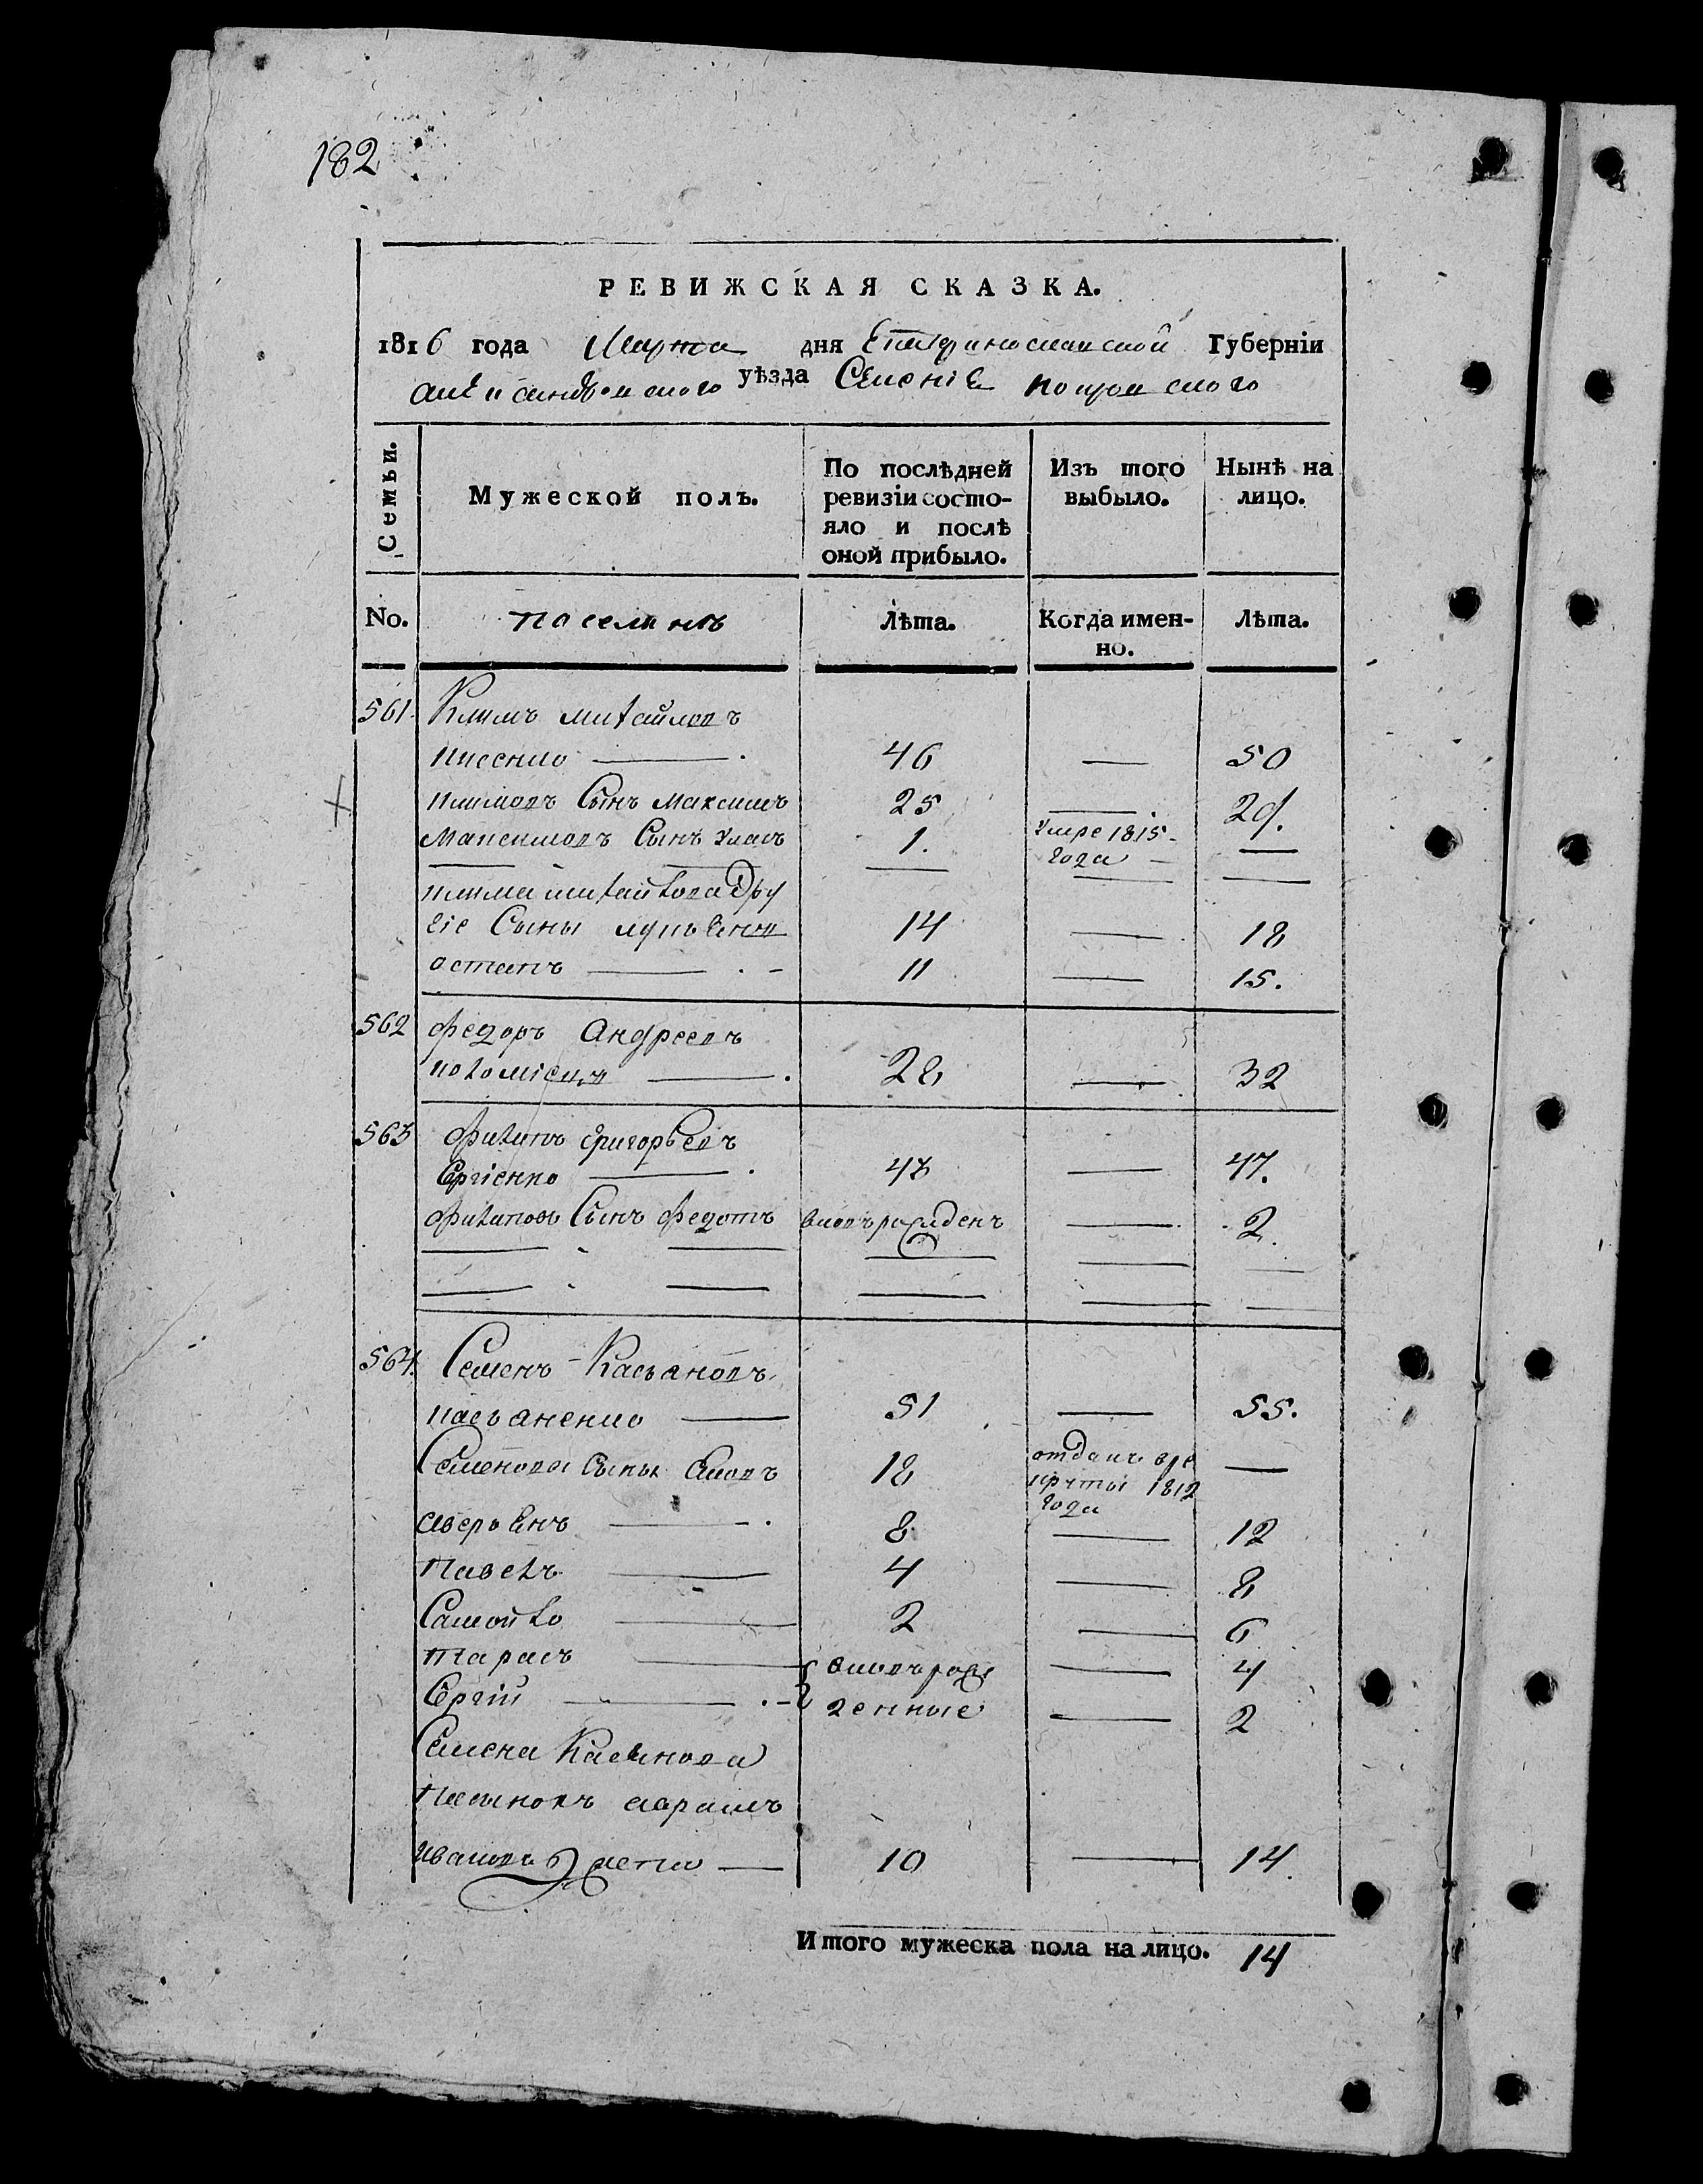 182
РЕВИЖСКАЯ СКАЗКА.
1816 года Марта дня Екатеринославской Губерніи
уѣзда Селеніе Покровского
Семьи.
Мужеской полъ.
По послѣдней ревизіи состо-
яло и послѣ
оной прибыло.
Изъ того
выбыло.
Нынѣ на
лицо.
No. поселянъ Лѣта. Когда имен-
но. Лѣта.
561. Климъ михайловъ
46 — 50
климовъ Сынъ максимъ 25 — 29.
Максимовъ Сынъ Уласъ 1. Умре 1815-
года —
клима михайлова дру
гіе Сыны лукьянъ 14 — 18
остапъ — 11 — 15.
562 федоръ андреевъ
коломіецъ — 28 — 32
563 филипъ григорьевъ
Сергіенко — 43 — 47.
филиповъ Сынъ федотъ вновьрожденъ — 2.
564. Семенъ Касьановъ
касьаненко — 51 — 55.
Семенова Сыны 18 отданъ вре
круты 1812
года —
аверьянъ — 8 — 12
Павелъ — 4 — 8
Самойло — 2 — 6
Тарасъ — вновьрож — 4
Сергій — денные — 2
Семена Касьянова
Пасынокъ авраамъ
Ивановъ — 10 — 14.
Итого мужеска пола на лицо. 14